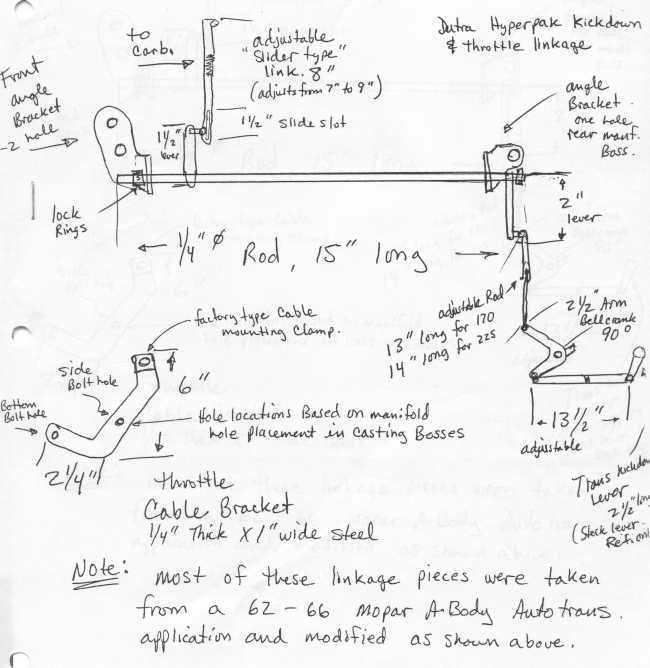 Dutra Hyperpak Kickdown
& throttle linkage
to
Carb.
adjustable
"Slider type"
link. 8"
(adjusts from 7" to 9")
1 1/2" Slide slot
1 1/2"
lever
Front
angle
Bracket
-2 hole
angle
Bracket.
one hole
rear manf.
Boss.
lock
Rings
2"
lever
1/4" ø Rod, 15" long
adjustable Rod
13" long for 170
14" long for 225
2 1/2" Arm
Bellcrank
90°
factory type Cable
mounting Clamp.
side
Bolt hole
Bottom
Bolt hole
6"
Hole locations Based on manifold
hole placement in Casting Bosses
2 1/4"
13 1/2"
adjustable
Trans kickdow
Lever
2 1/2" long
(Stock lever
Throttle
Cable Bracket
1/4" Thick X 1" wide Steel
Note: most of these linkage pieces were taken
from a 62-66 mopar A-Body Auto trans.
application and modified as shown above.